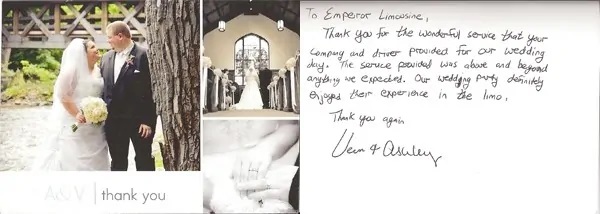 A & V | thank you
To Emperor Limousine,
Thank you for the wonderful service that your
company and driver provided for our wedding
day. The service provided was above and beyond
anything we expected. Our wedding party definitely
enjoyed their experience in the limo.
Thank you again
Vern & Ashley